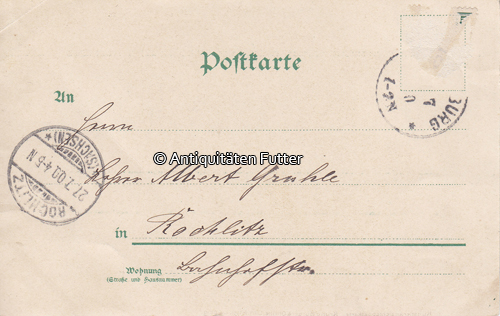 Postkarte
An
Herrn
© Antiquitäten Futter
Albert Gruhle
in Rochlitz
Wohnung
(Straße und Hausnummer)
Bahnhofstr.
ROCHLITZ (SACHSEN)
21.7.00.4-5N
BURG